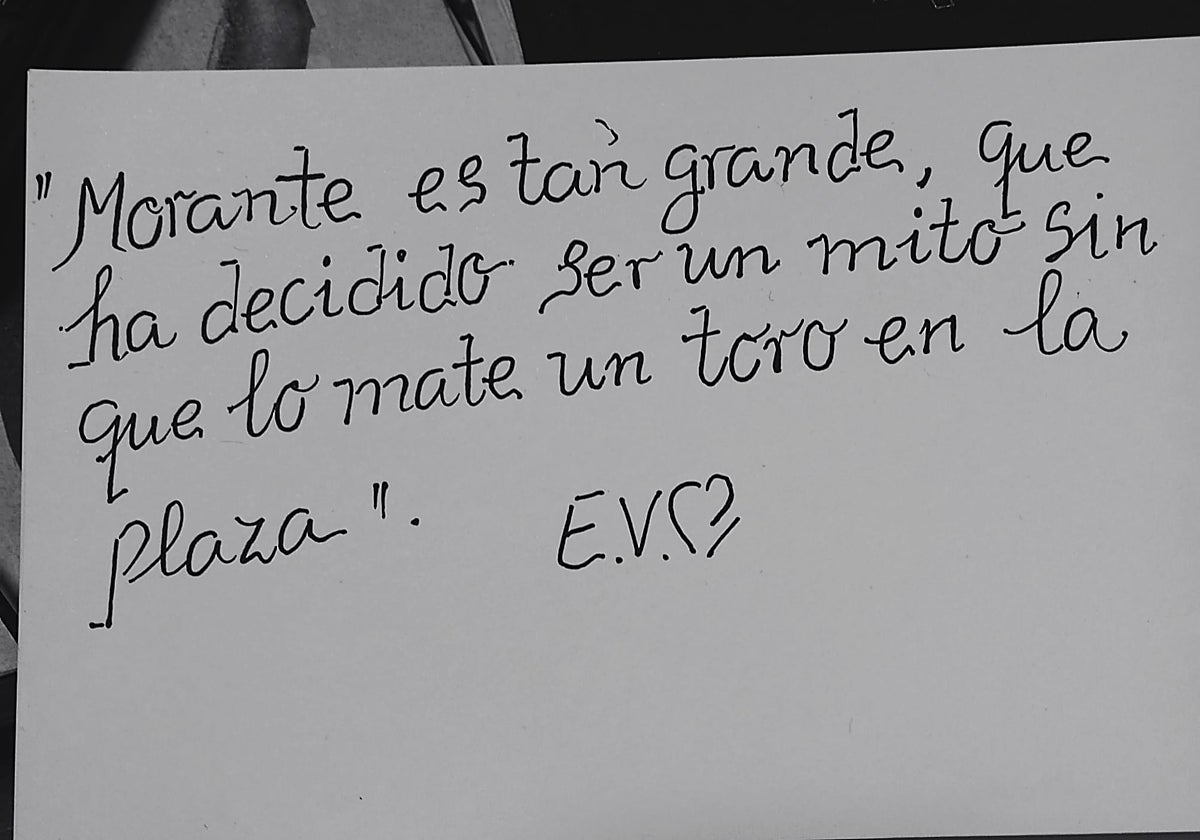 "Morante es tan grande, que
ha decidido ser un mito sin
que lo mate un toro en la
plaza". E.V.♡